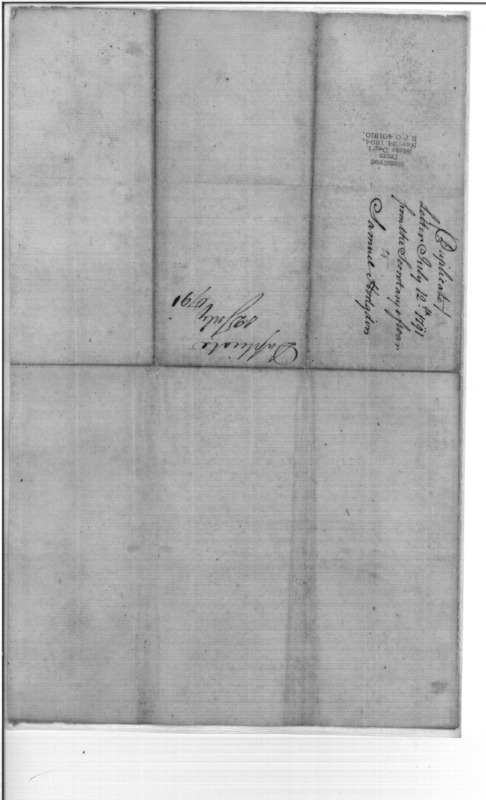 (Duplicate)
Letter July 12th 1791
from the Secretary of war
to
Samuel Hodgdon
Duplicate
12 July 1791
Received
from
State Dep't.
Nov. 24, 1894
R. P. O. 401810.